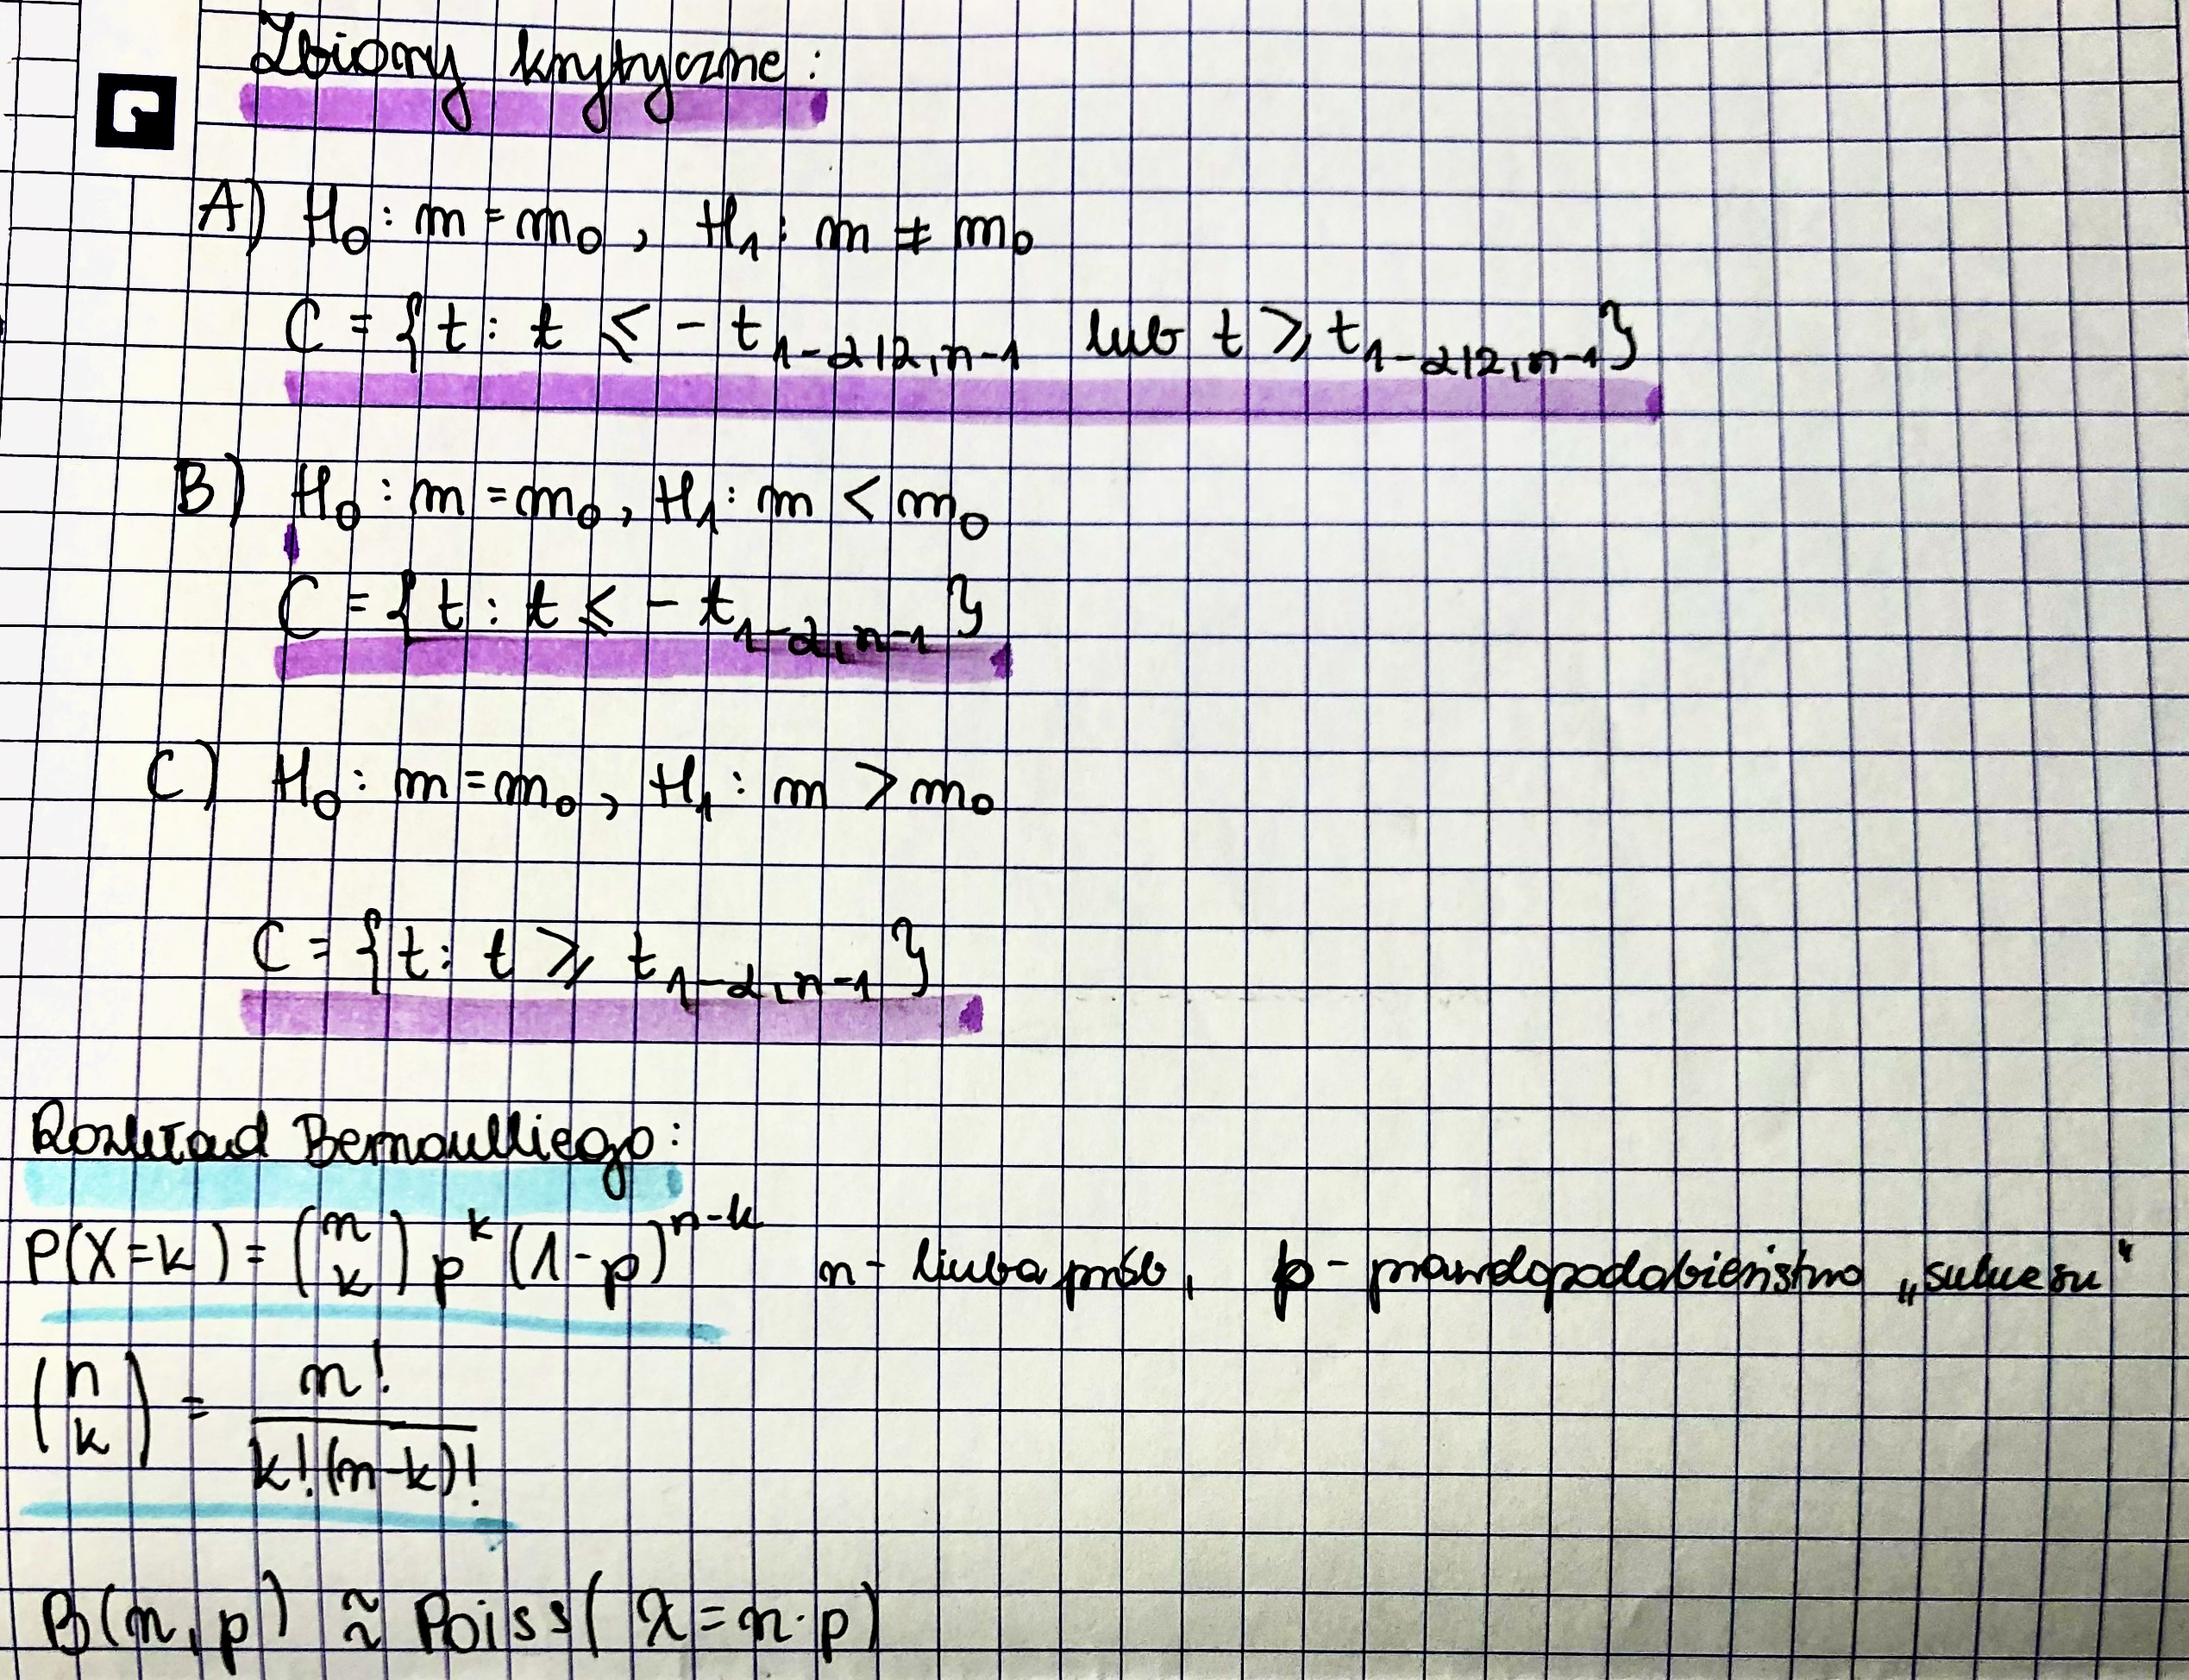 Zbiory krytyczne:
A) H₀: m = m₀, H₁: m ≠ m₀
C = {t: t ≤ - t₁₋α/₂,ₙ₋₁ lub t ≥ t₁₋α/₂,ₙ₋₁}
B) H₀: m = m₀, H₁: m < m₀
C = {t: t ≤ - t₁₋α,ₙ₋₁}
C) H₀: m = m₀, H₁: m > m₀
C = {t: t ≥ t₁₋α,ₙ₋₁}
Rozkład Bernoulliego:
P(X=k) = (n k) pᵏ (1-p)ⁿ⁻ᵏ n - liczba prób, p - prawdopodobieństwo „sukcesu"
(n k) = n! / k!(n-k)!
B(n, p) ≈ Poiss(λ = n·p)